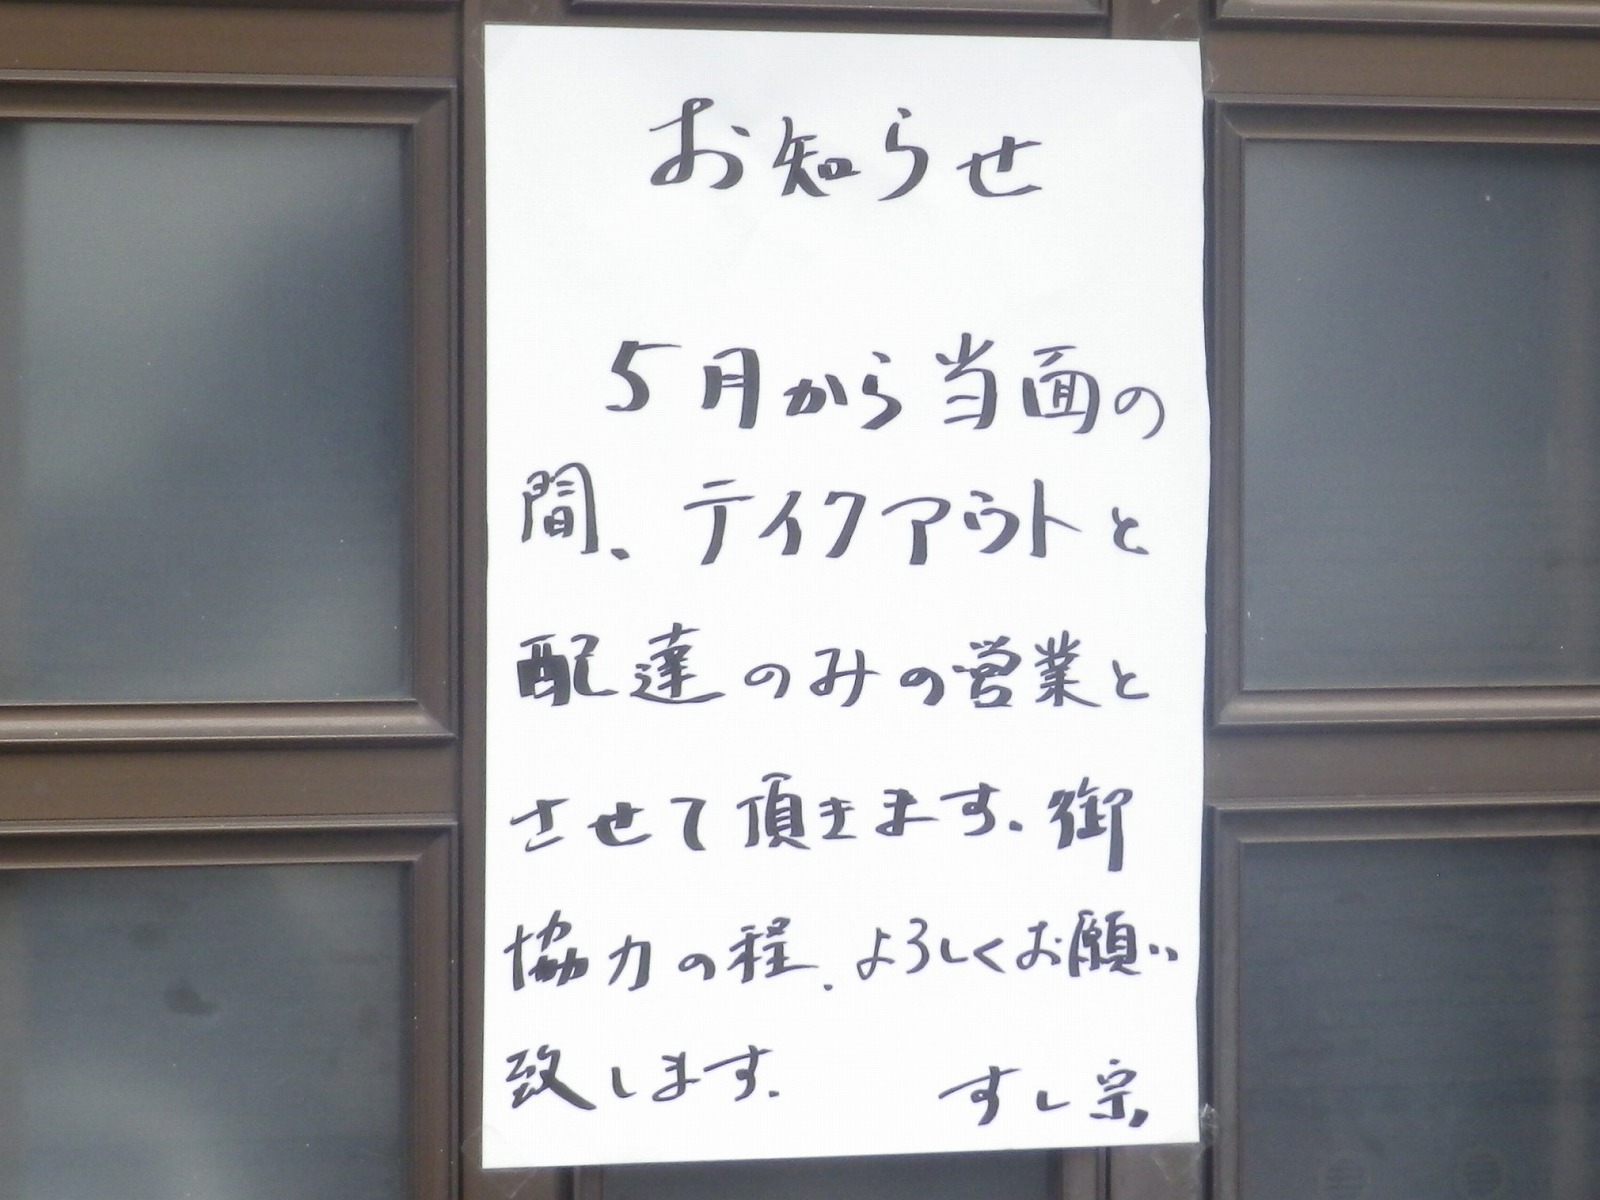 お知らせ
5月から当面の
間、テイクアウトと
配達のみの営業と
させて頂きます。御
協力の程、よろしくお願い
致します。 すし宗